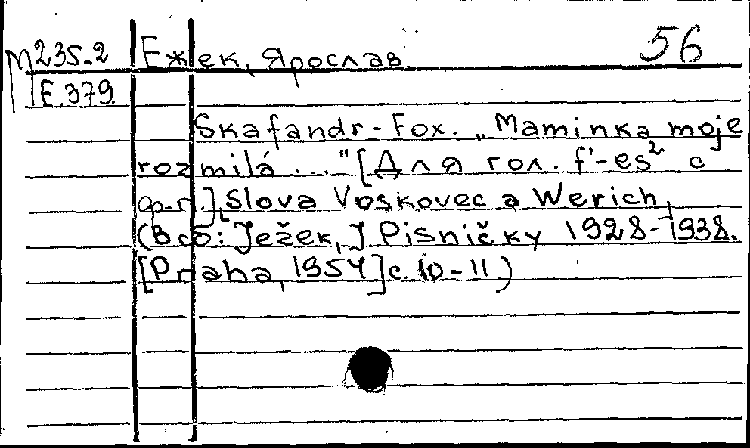 М235-2 Ежек, Ярослав 56
Е 379
Skafandr-Fox. „Maminka moje
rozmilá ..." [Для гол. f'-es² с
ф-п.] Slova Voskovec a Werich,
(В сб: Ježek, J Pisničky 1928-1938.
[Praha, 1954] с. 10-11)